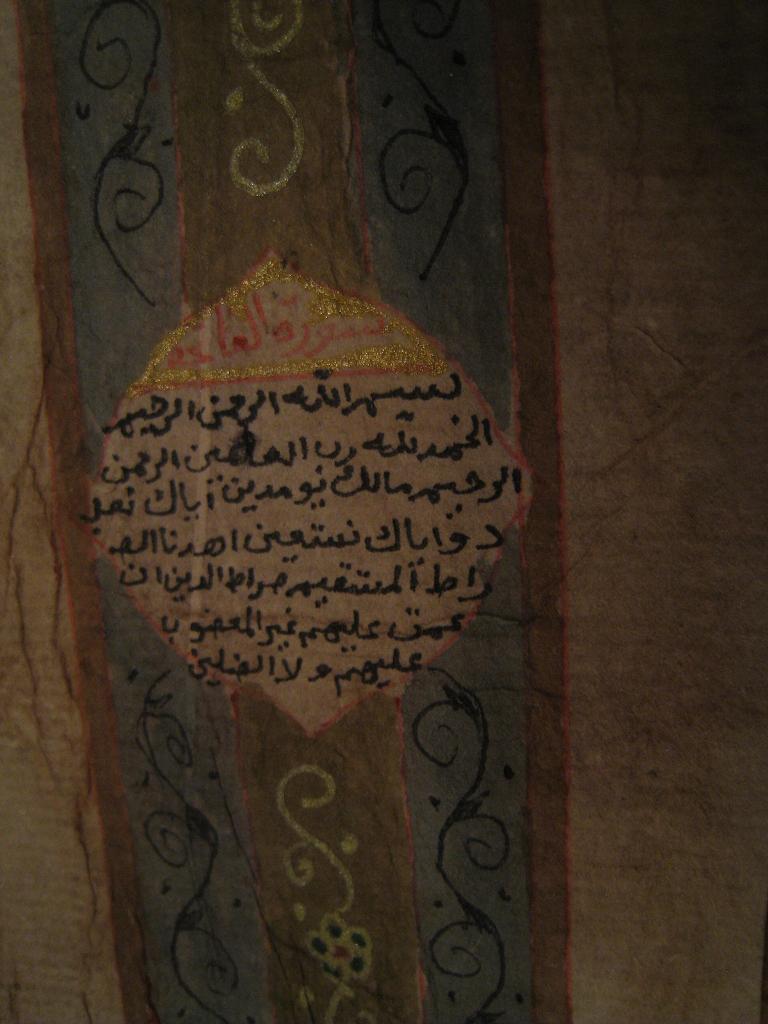 سورة الفاتحة
بسم الله الرحمن الرحيم
الحمد لله رب العالمين الرحمن
الرحيم مالك يوم دين اياك نعبـ
د واياك نستعين اهدنا الصـ
راط المستقيم صراط الذين ان
عمت عليهم غير المغضوب
عليهم ولا الضلين